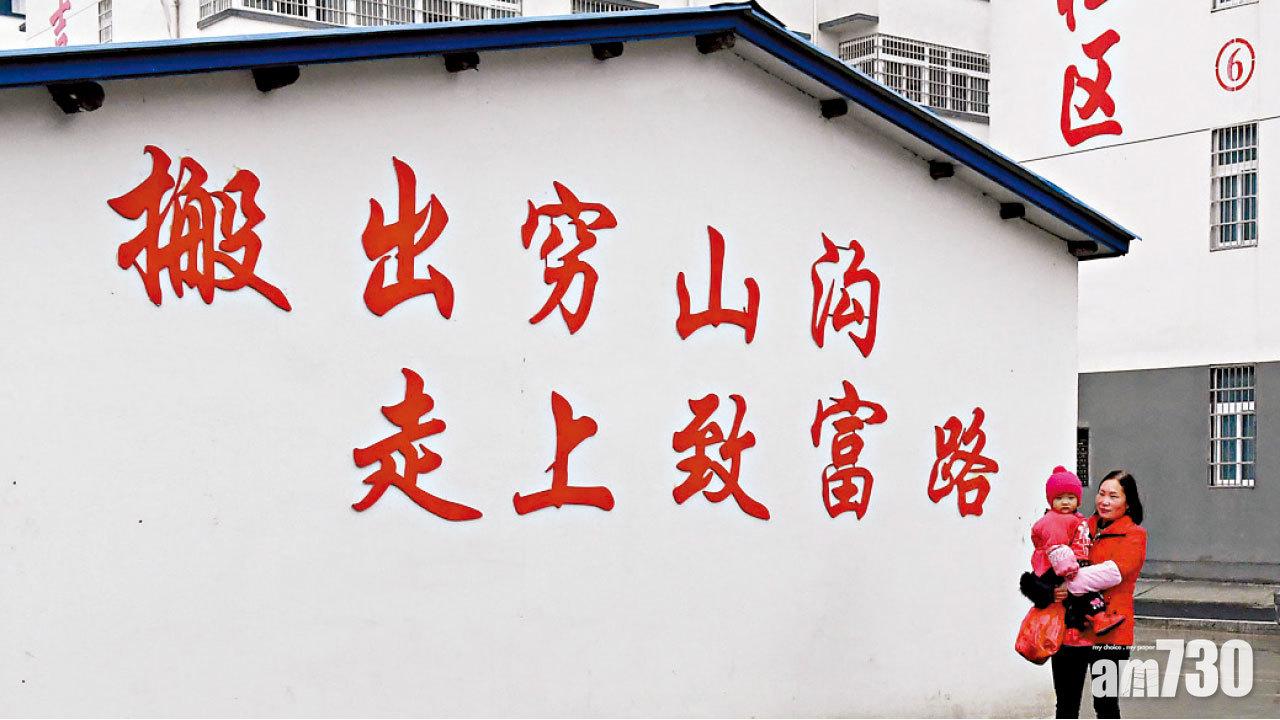 搬出穷山沟
走上致富路
区
⑥
my choice . my paper
am730